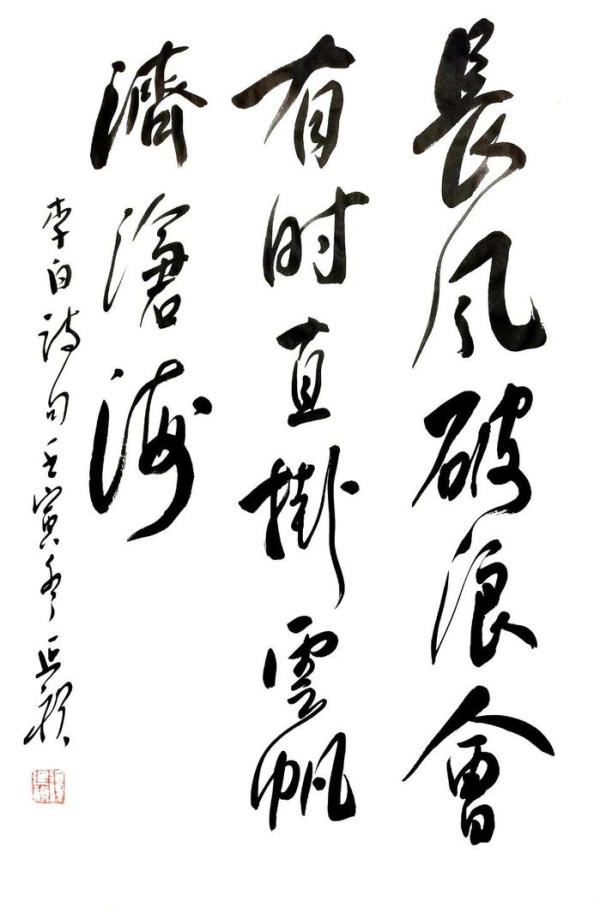 長风破浪會
有时直掛雲帆
濟滄海
李白诗句壬寅